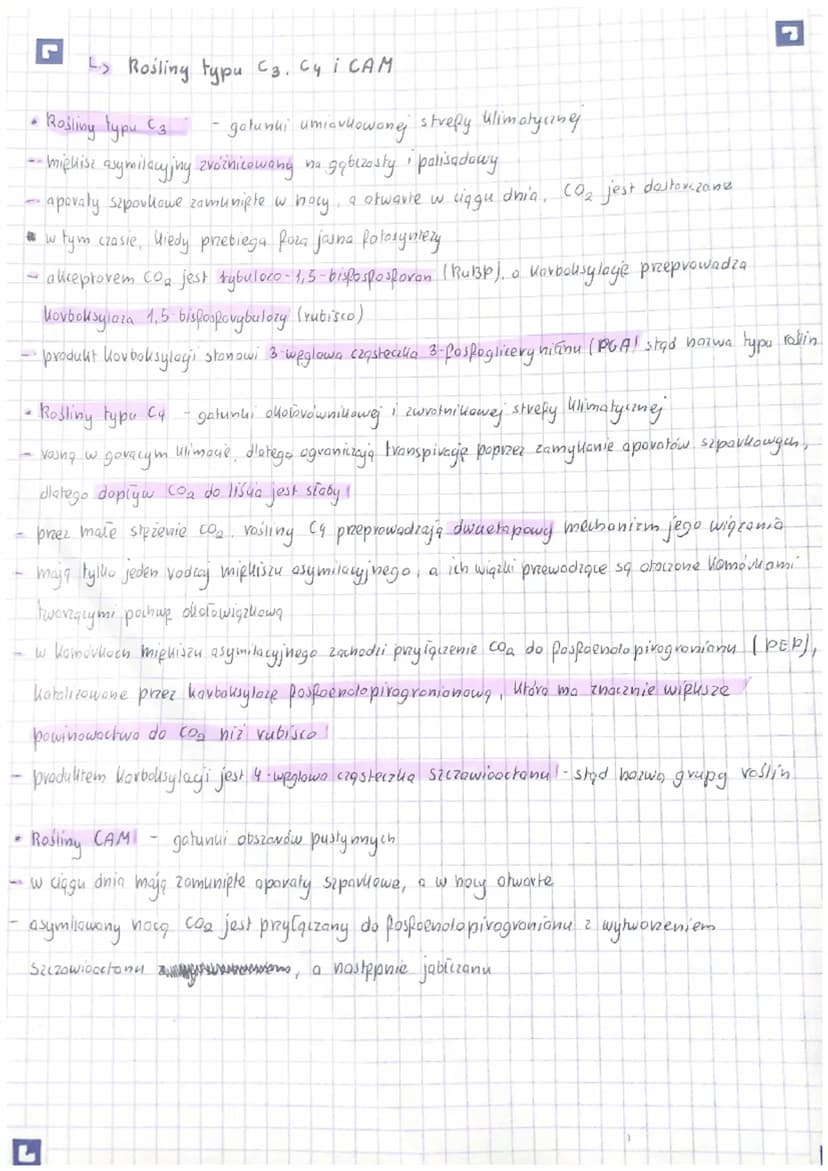 ↳ Rośliny typu C3, C4 i CAM
• Rośliny typu C3 - gatunki umiarkowanej strefy klimatycznej
- miękisz asymilacyjny zróżnicowany na gąbczasty i palisadowy
- aparaty szparkowe zamknięte w nocy, a otwarte w ciągu dnia, CO2 jest dostarczane
w tym czasie, kiedy przebiega faza jasna fotosyntezy
- akceptorem CO2 jest rybulozo-1,5-bisfosfosforan (RuBP), a karboksylację przeprowadza
karboksylaza 1,5 bisfosforybulozy (rubisco)
- produkt karboksylacji stanowi 3-węglowa cząsteczka 3-fosfoglicerynianu (PGA) stąd nazwa typu roślin
• Rośliny typu C4 - gatunki okołorównikowej i zwrotnikowej strefy klimatycznej
- rosną w gorącym klimacie, dlatego ograniczają transpirację poprzez zamykanie aparatów szparkowych,
dlatego dopływ CO2 do liścia jest słaby
- przez małe stężenie CO2, rośliny C4 przeprowadzają dwuetapowy mechanizm jego wiązania
- mają tylko jeden rodzaj miękiszu asymilacyjnego, a ich wiązki przewodzące są otoczone komórkami
tworzącymi pochwę okołowiązkową
- w komórkach miękiszu asymilacyjnego zachodzi przyłączenie CO2 do fosfoenolopirogronianu (PEP),
katalizowane przez karboksylazę fosfoenolopirogronianową, która ma znacznie większe
powinowactwo do CO2 niż rubisco
- produktem karboksylacji jest 4-węglowa cząsteczka szczawiooctanu - stąd nazwa grupy roślin
• Rośliny CAM - gatunki obszarów pustynnych
- w ciągu dnia mają zamknięte aparaty szparkowe, a w nocy otwarte
- asymilowany nocą CO2 jest przyłączany do fosfoenolopirogronianu z wytworzeniem
szczawiooctanu, a następnie jabłczanu